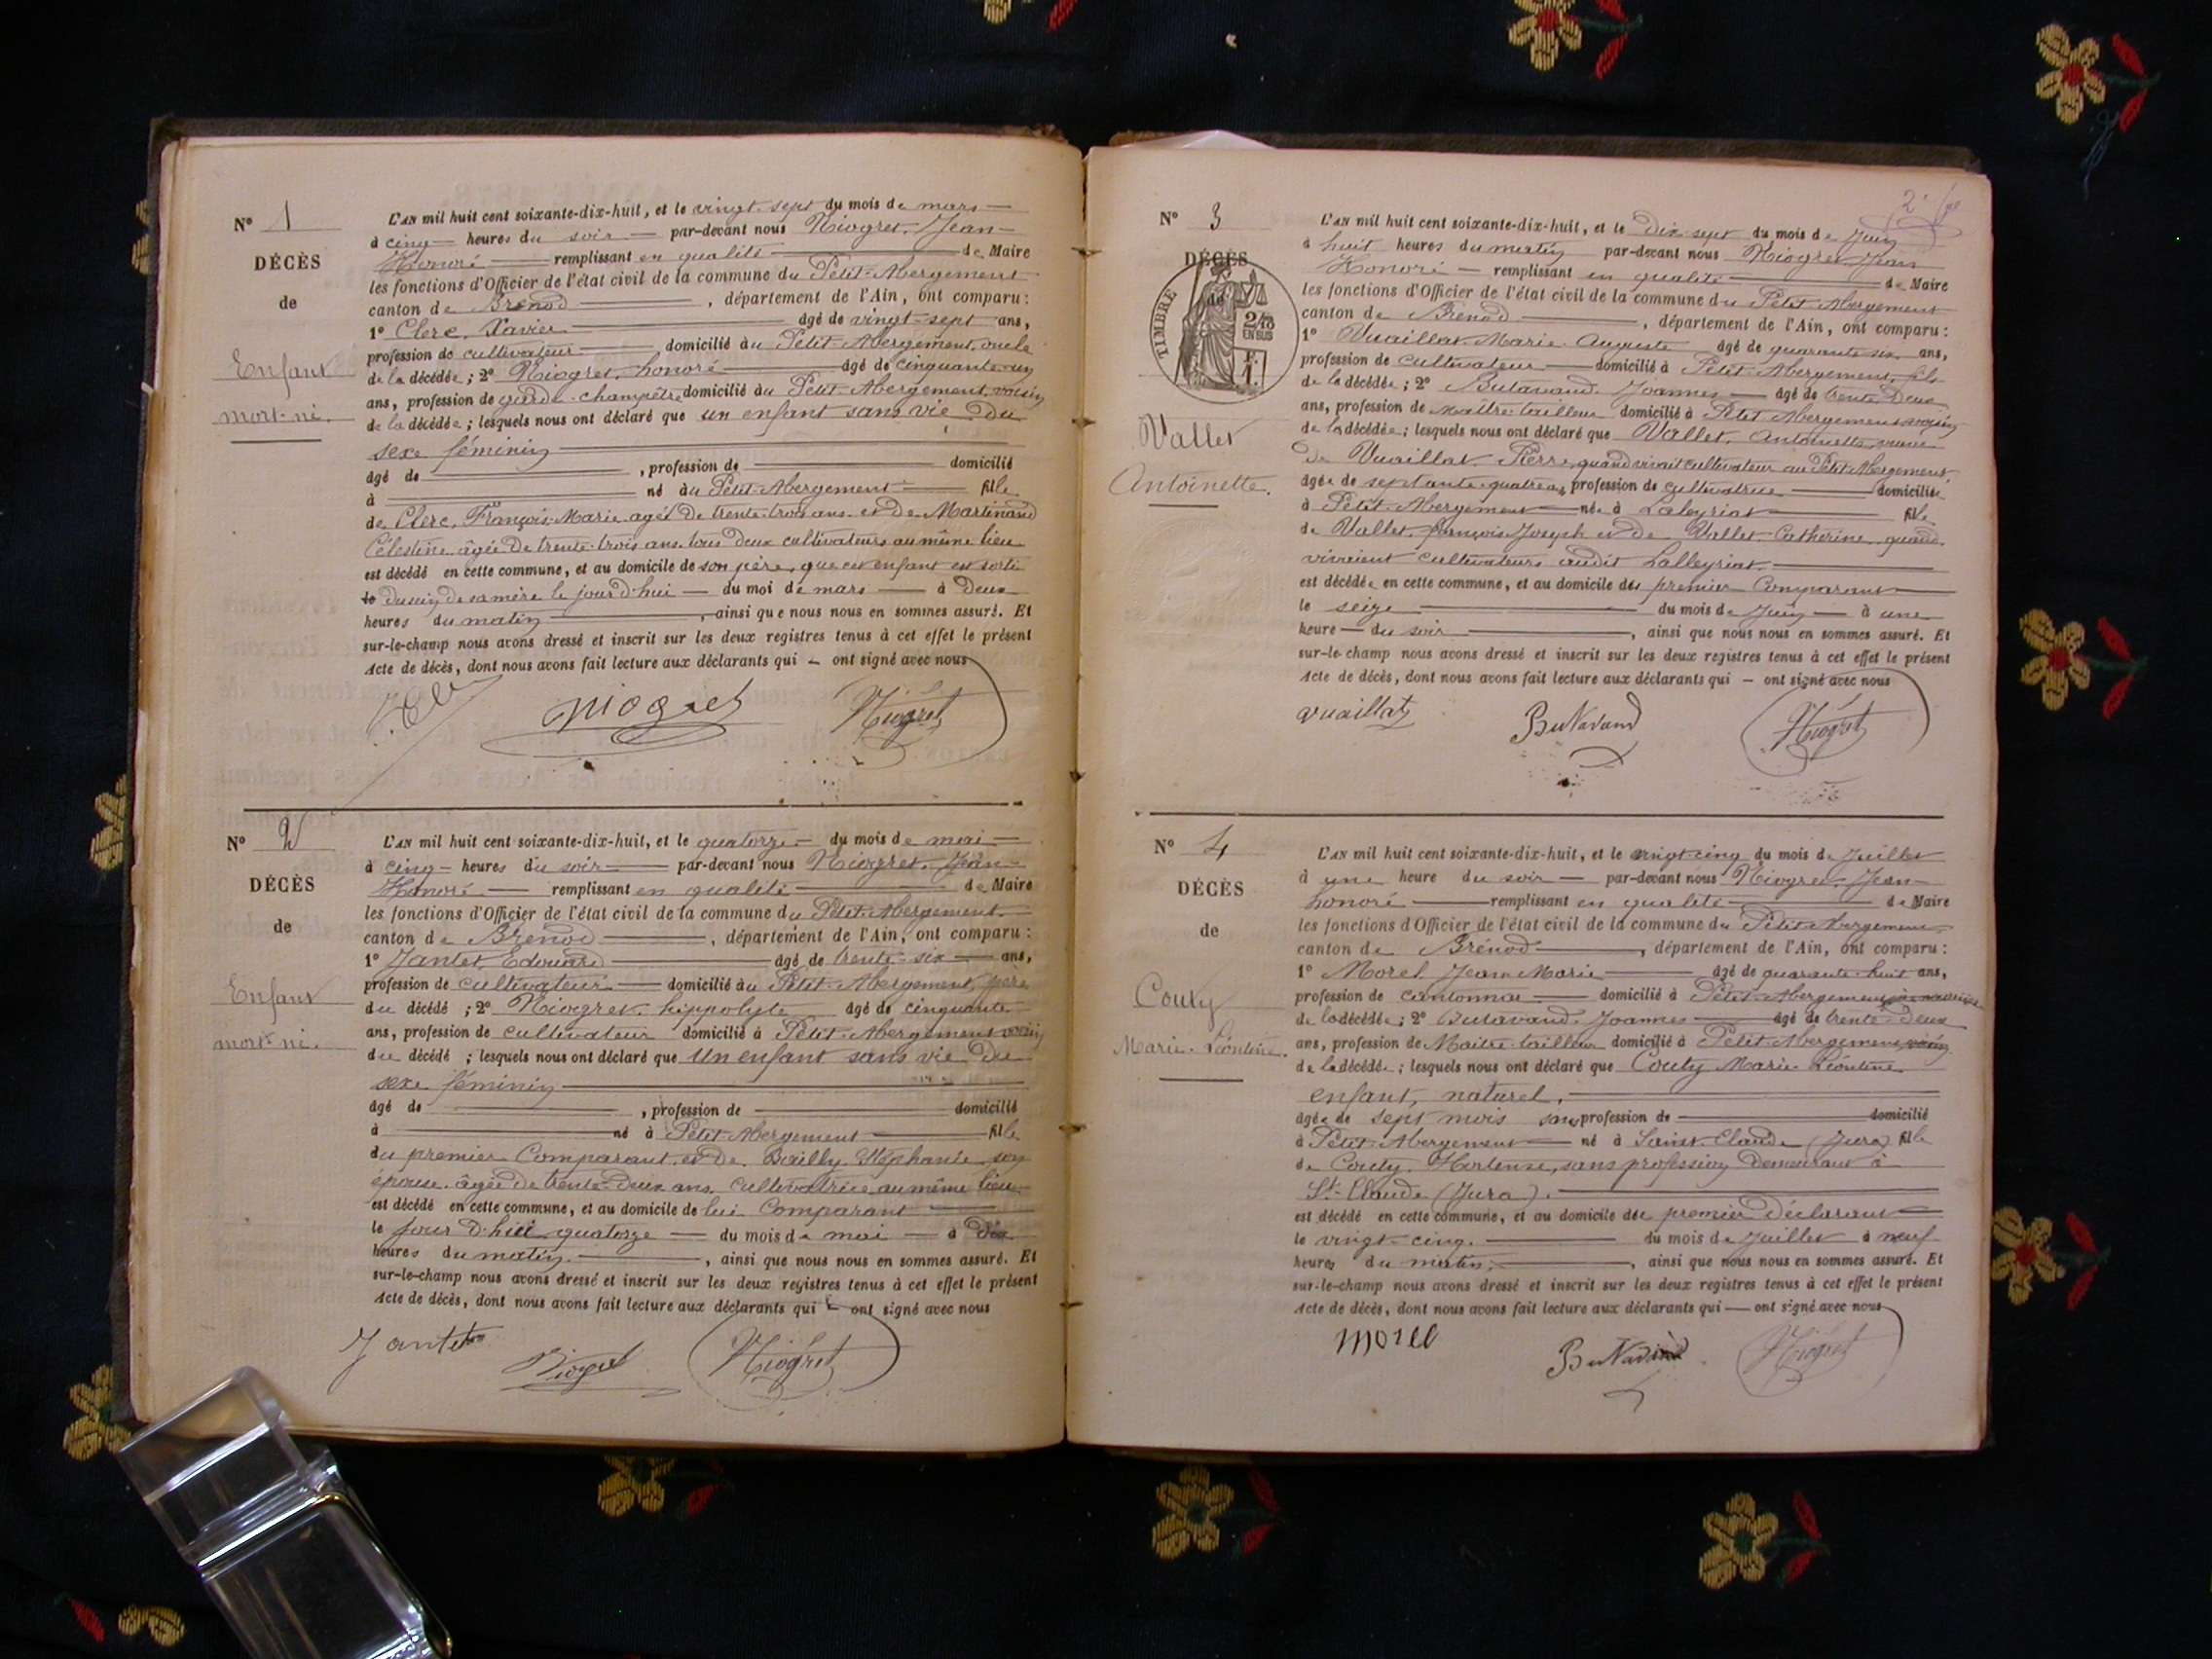 N° 1
DÉCÈS
de
Enfant
mort-né.
L'AN mil huit cent soixante-dix-huit, et le vingt-sept du mois de mars
à cinq heures du soir par-devant nous Niogret, Jean-
Honoré remplissant en qualité de Maire
les fonctions d'Officier de l'état civil de la commune du Petit-Abergement
canton de Brénod, département de l'Ain, ont comparu :
1° Clerc, Xavier âgé de vingt-sept ans,
profession de cultivateur domicilié au Petit-Abergement, oncle
de la décédée ; 2° Niogret, honoré âgé de cinquante-un
ans, profession de garde-champêtre domicilié au Petit-Abergement, voisin
de la décédée ; lesquels nous ont déclaré que un enfant sans vie du
sexe féminin
âgé de , profession de domicilié
à né au Petit-Abergement fille
de Clerc, François-Marie agé de trente-trois ans et de Martinand
Célestine âgée de trente-trois ans tous deux cultivateurs au même lieu
est décédé en cette commune, et au domicile de son père, que cet enfant est sorti
le du sein de sa mère le jour d'hui du moi de mars à deux
heures du matin, ainsi que nous nous en sommes assuré. Et
sur-le-champ nous avons dressé et inscrit sur les deux registres tenus à cet effet le présent
Acte de décès, dont nous avons fait lecture aux déclarants qui ont signé avec nous
niogret Niogret
N° 2
DÉCÈS
de
Enfant
mort-né.
L'AN mil huit cent soixante-dix-huit, et le quatorze du mois de mai
à cinq heures du soir par-devant nous Niogret, Jean-
Honoré remplissant en qualité de Maire
les fonctions d'Officier de l'état civil de la commune du Petit-Abergement
canton de Brénod, département de l'Ain, ont comparu :
1° Jantet, Edouard âgé de trente-six ans,
profession de cultivateur domicilié au Petit-Abergement, père
du décédé ; 2° Niogret, hippolyte âgé de cinquante
ans, profession de cultivateur domicilié à Petit-Abergement voisin
du décédé ; lesquels nous ont déclaré que un enfant sans vie du
sexe féminin
âgé de , profession de domicilié
à né à Petit-Abergement fille
du premier Comparant et de Bailly Stéphanie son
épouse, âgée de trente-deux ans, cultivatrice au même lieu
est décédé en cette commune, et au domicile de lui Comparant
le jour d'hui quatorze du mois de mai à dix
heures du matin, ainsi que nous nous en sommes assuré. Et
sur-le-champ nous avons dressé et inscrit sur les deux registres tenus à cet effet le présent
Acte de décès, dont nous avons fait lecture aux déclarants qui ont signé avec nous
Jantet Niogret Niogret
N° 3
DÉCÈS
de
TIMBRE
2/10
EN SUS
1 F.
Vallet
Antoinette.
L'AN mil huit cent soixante-dix-huit, et le dix-sept du mois de Juin
à huit heures du matin par-devant nous Niogret Jean
Honoré remplissant en qualité de Maire
les fonctions d'Officier de l'état civil de la commune du Petit-Abergement
canton de Brénod, département de l'Ain, ont comparu :
1° Vuaillat Marie Auguste âgé de quarante-six ans,
profession de cultivateur domicilié à Petit-Abergement, fils
de la décédée ; 2° Butavand, Joannes âgé de trente deux
ans, profession de maître-tailleur domicilié à Petit Abergement voisin
de la décédée ; lesquels nous ont déclaré que Vallet, Antoinette, veuve
de Vuaillat Pierre, quand vivait cultivateur au Petit-Abergement,
âgée de septante-quatre ans, profession de cultivatrice domiciliée
à Petit-Abergement née à Laleyriat fille
de Vallet françois Joseph et de Vallet Catherine, quand
vivaient cultivateurs audit Lalleyriat
est décédée en cette commune, et au domicile du premier Comparant
le seize du mois de Juin à une
heure du soir, ainsi que nous nous en sommes assuré. Et
sur-le-champ nous avons dressé et inscrit sur les deux registres tenus à cet effet le présent
Acte de décès, dont nous avons fait lecture aux déclarants qui ont signé avec nous
vuaillat Butavand Niogret
N° 4
DÉCÈS
de
Couty
Marie-Léontine.
L'AN mil huit cent soixante-dix-huit, et le vingt-cinq du mois de Juillet
à une heure du soir par-devant nous Niogret, Jean-
honoré remplissant en qualité de Maire
les fonctions d'Officier de l'état civil de la commune du Petit-Abergement
canton de Brénod, département de l'Ain, ont comparu :
1° Morel Jean Marie âgé de quarante-huit ans,
profession de cantonnier domicilié à Petit-Abergement
de la décédée ; 2° Butavand, Joannes âgé de trente-deux
ans, profession de Maître tailleur domicilié à Petit Abergement voisin
de la décédée ; lesquels nous ont déclaré que Couty Marie Léontine
enfant, naturel,
âgée de sept mois sans profession de domicilié
à Petit-Abergement né à Saint-Claude (Jura) fille
de Couty, Hortense, sans profession demeurant à
St-Claude (Jura).
est décédé en cette commune, et au domicile du premier Déclarant
le vingt-cinq du mois de Juillet à neuf
heures du matin, ainsi que nous nous en sommes assuré. Et
sur-le-champ nous avons dressé et inscrit sur les deux registres tenus à cet effet le présent
Acte de décès, dont nous avons fait lecture aux déclarants qui ont signé avec nous
morel Butavand Niogret